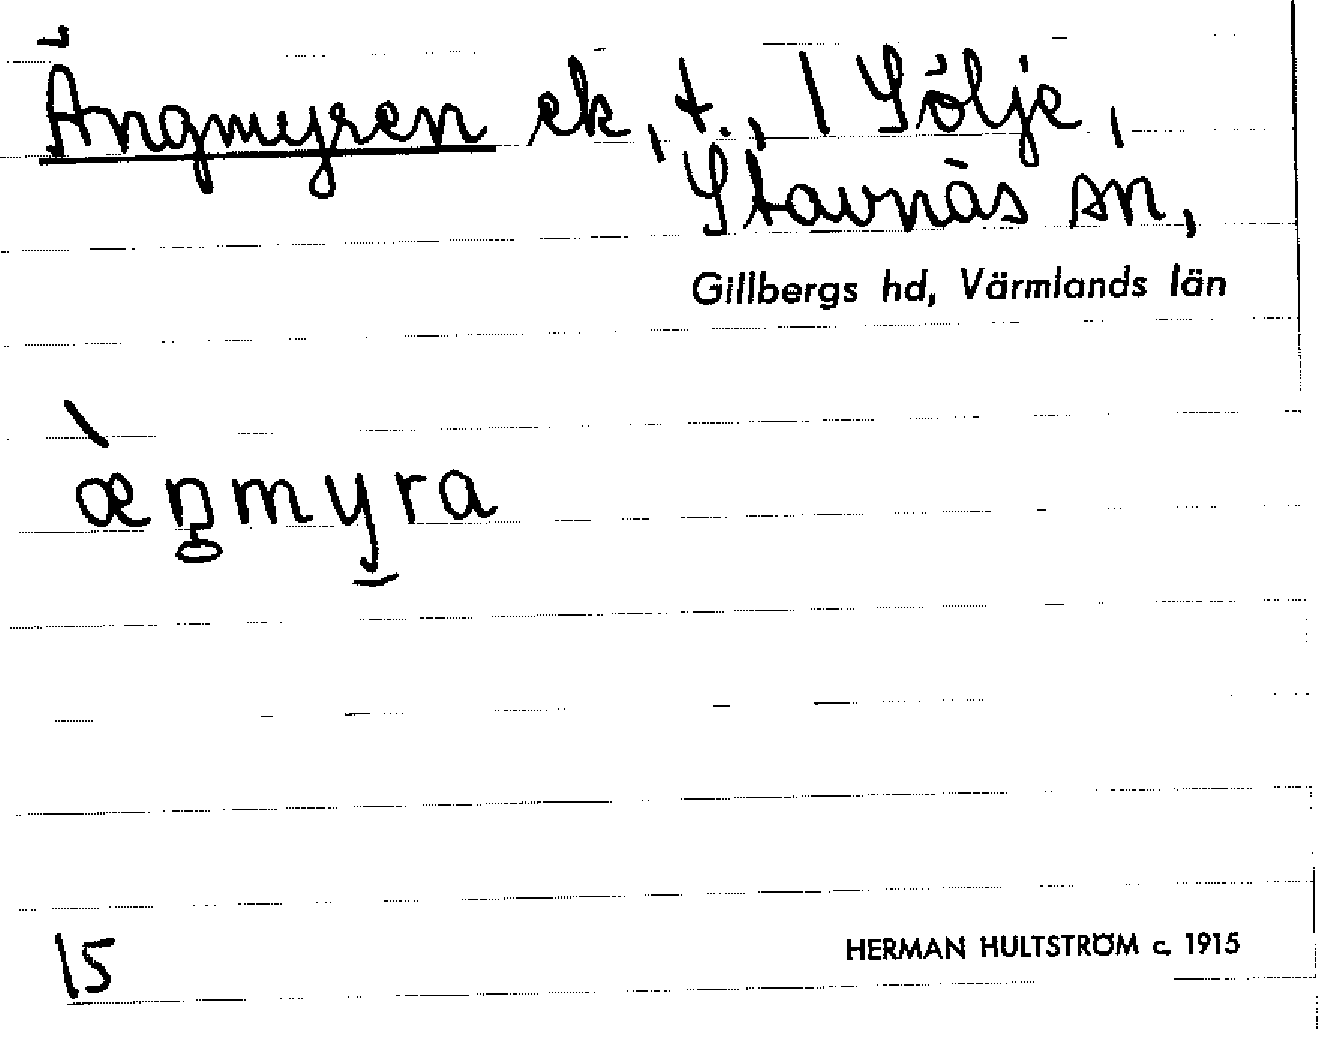 Ängmyren ek, t., 1 Sölje,
Stavnäs sn,
Gillbergs hd, Värmlands län
æŋmyra
15
HERMAN HULTSTRÖM c. 1915